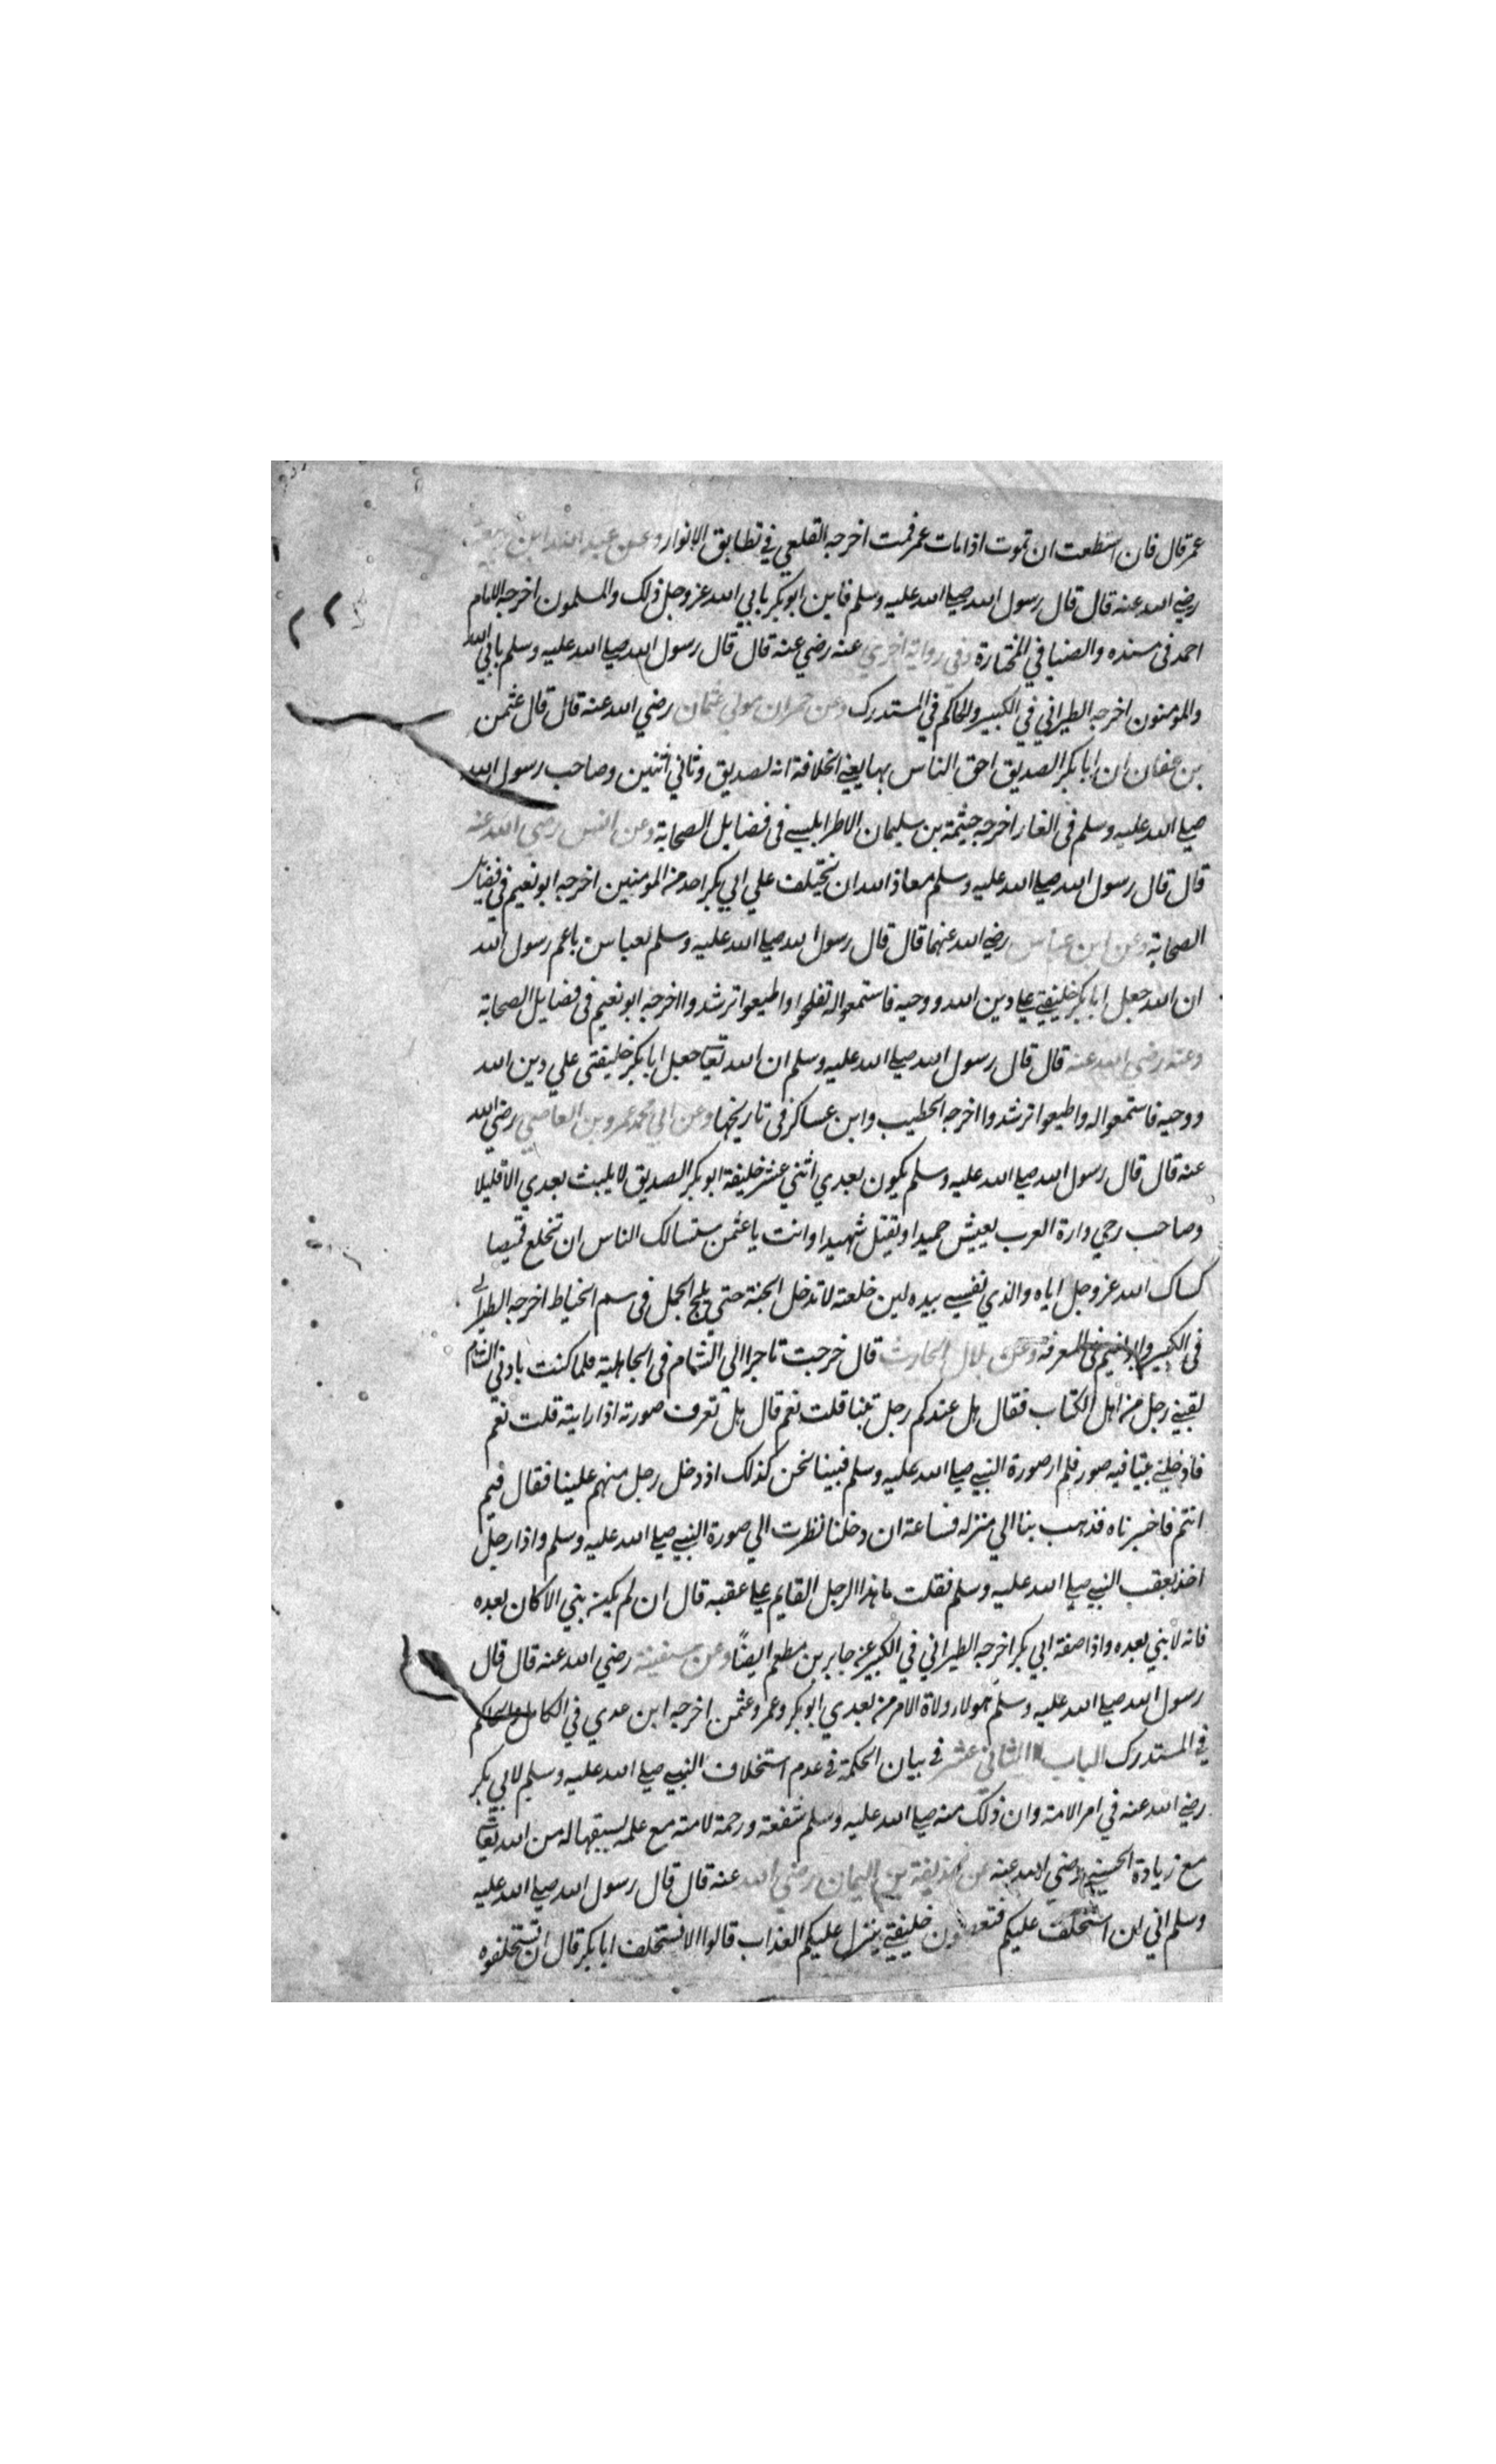 عمر قال فان استطعت ان تموت اذا مات عمر فمت اخرجه القلعي في تطابق الانوار وعن عبد الله ابن
رضي الله عنه قال قال رسول الله صلي الله عليه وسلم فاين ابوبكر يابي الله عز وجل ذلك والمسلمون اخرجه الامام
احمد في مسنده والضيا في المختارة وفي رواية اخري عنه رضي عنه قال قال رسول الله صلي الله عليه وسلم يابي الله
والمومنون اخرجه الطبراني في الكبير والحاكم في المستدرك وعن حمران مولي عثمان رضي الله عنه قال قال عثمن
بن عفان ان ابا بكر الصديق احق الناس بها يعني الخلافة انه لصديق وثاني اثنين وصاحب رسول الله
صلي الله عليه وسلم في الغار اخرجه خيثمة بن سليمان الاطرابلسي في فضايل الصحابة وعن انس رضي الله عنه
قال قال رسول الله صلي الله عليه وسلم معاذ الله ان تختلف علي ابي بكر احد من المومنين اخرجه ابو نعيم في فضايل
الصحابة وعن ابن عباس رضي الله عنهما قال قال رسول الله صلي الله عليه وسلم لعباس يا عم رسول الله
ان الله جعل ابا بكر خليفتي علي دين الله ووحيه فاستمعوا له تفلحوا واطيعوا ترشدوا اخرجه ابو نعيم في فضايل الصحابة
وعنه رضي الله عنه قال قال رسول الله صلي الله عليه وسلم ان الله تعالي جعل ابا بكر خليفتي علي دين الله
ووحيه فاستمعوا له واطيعوا ترشدوا اخرجه الخطيب وابن عساكر في تاريخها وعن ابي محمد عمرو بن العاصي رضي الله
عنه قال قال رسول الله صلي الله عليه وسلم يكون بعدي اثني عشر خليفة ابو بكر الصديق لا يلبث بعدي الا قليلا
وصاحب رحي دارة العرب يعيش حميدا ويقتل شهيدا وانت يا عثمن ستسالك الناس ان تخلع قميصا
كساك الله عز وجل اياه والذي نفسي بيده لين خلعته لا تدخل الجنة حتي يلج الجمل في سم الخياط اخرجه الطبراني
في الكبير وابو نعيم في المعرفه وعن بلال الحارث قال خرجت تاجرا الي الشام في الجاهلية فلما كنت بادني الشام
لقيني رجل من اهل الكتاب فقال هل عندكم رجل تنبا قلت نعم قال هل تعرف صورته اذا رايته قلت نعم
فادخلني بيتا فيه صور فلم ار صورة النبي صلي الله عليه وسلم فبينا نحن كذلك اذ دخل رجل منهم علينا فقال فيم
انتم فاخبرناه فذهب بنا الي منزله فساعة ان دخلنا نظرت الي صورة النبي صلي الله عليه وسلم واذا رجل
اخذ بعقب النبي صلي الله عليه وسلم فقلت ما هذا الرجل القايم علي عقبه قال ان لم يكن نبي الا كان بعده
فانه لا نبي بعده واذا صفة ابي بكر اخرجه الطبراني في الكبير عن جابر بن مطعم ايضًا وعن سفينة رضي الله عنه قال قال
رسول الله صلي الله عليه وسلم هولاء ولاة الامر من بعدي ابو بكر وعمر وعثمن اخرجه ابن عدي في الكامل والحاكم
في المستدرك الباب الثاني عشر في بيان الحكمة في عدم استخلاف النبي صلي الله عليه وسلم لابي بكر
رضي الله عنه في امر الامة وان ذلك منه صلي الله عليه وسلم شفقة ورحمة لامته مع علمه بسبقها له من الله تعالي
مع زيادة الحسني رضي الله عنه عن حذيفة بن اليمان رضي الله عنه قال قال رسول الله صلي الله عليه
وسلم اني ان استخلف عليكم خليفتي ينزل عليكم العذاب قالوا الا نستخلف ابا بكر قال ان تستخلفوه